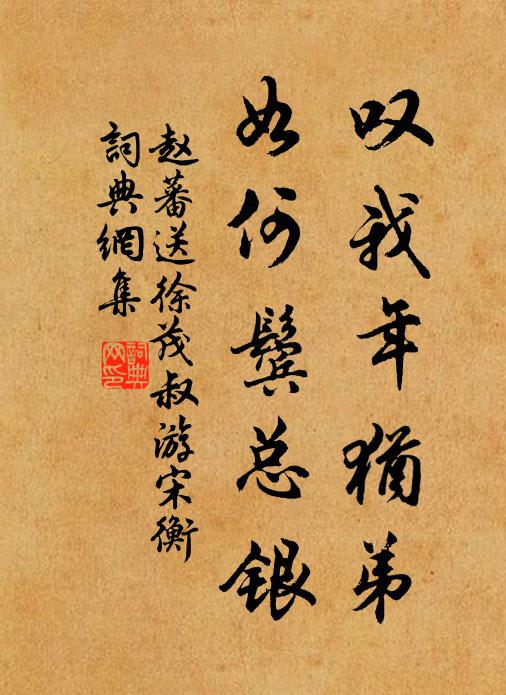 叹我年犹弟
如何鬓总银
赵蕃送徐茂叔游宋衡
词典網集
詞典網印